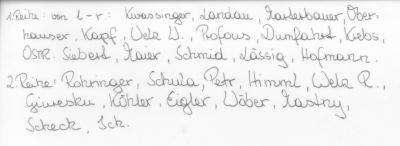 1. Reihe: von l-r: Kwassinger, Landau, Harderbauer, Ober-
hauser, Kapf, Welz W., Profous, Dumfahrt, Krebs,
OSTR. Siebert, Maier, Schmid, Lässig, Hofmann.
2. Reihe: Rohringer, Schula, Petr, Himml, Welz R.,
Giurescu, Köhler, Eigler, Wöber, Hastny,
Scheck, Ick.